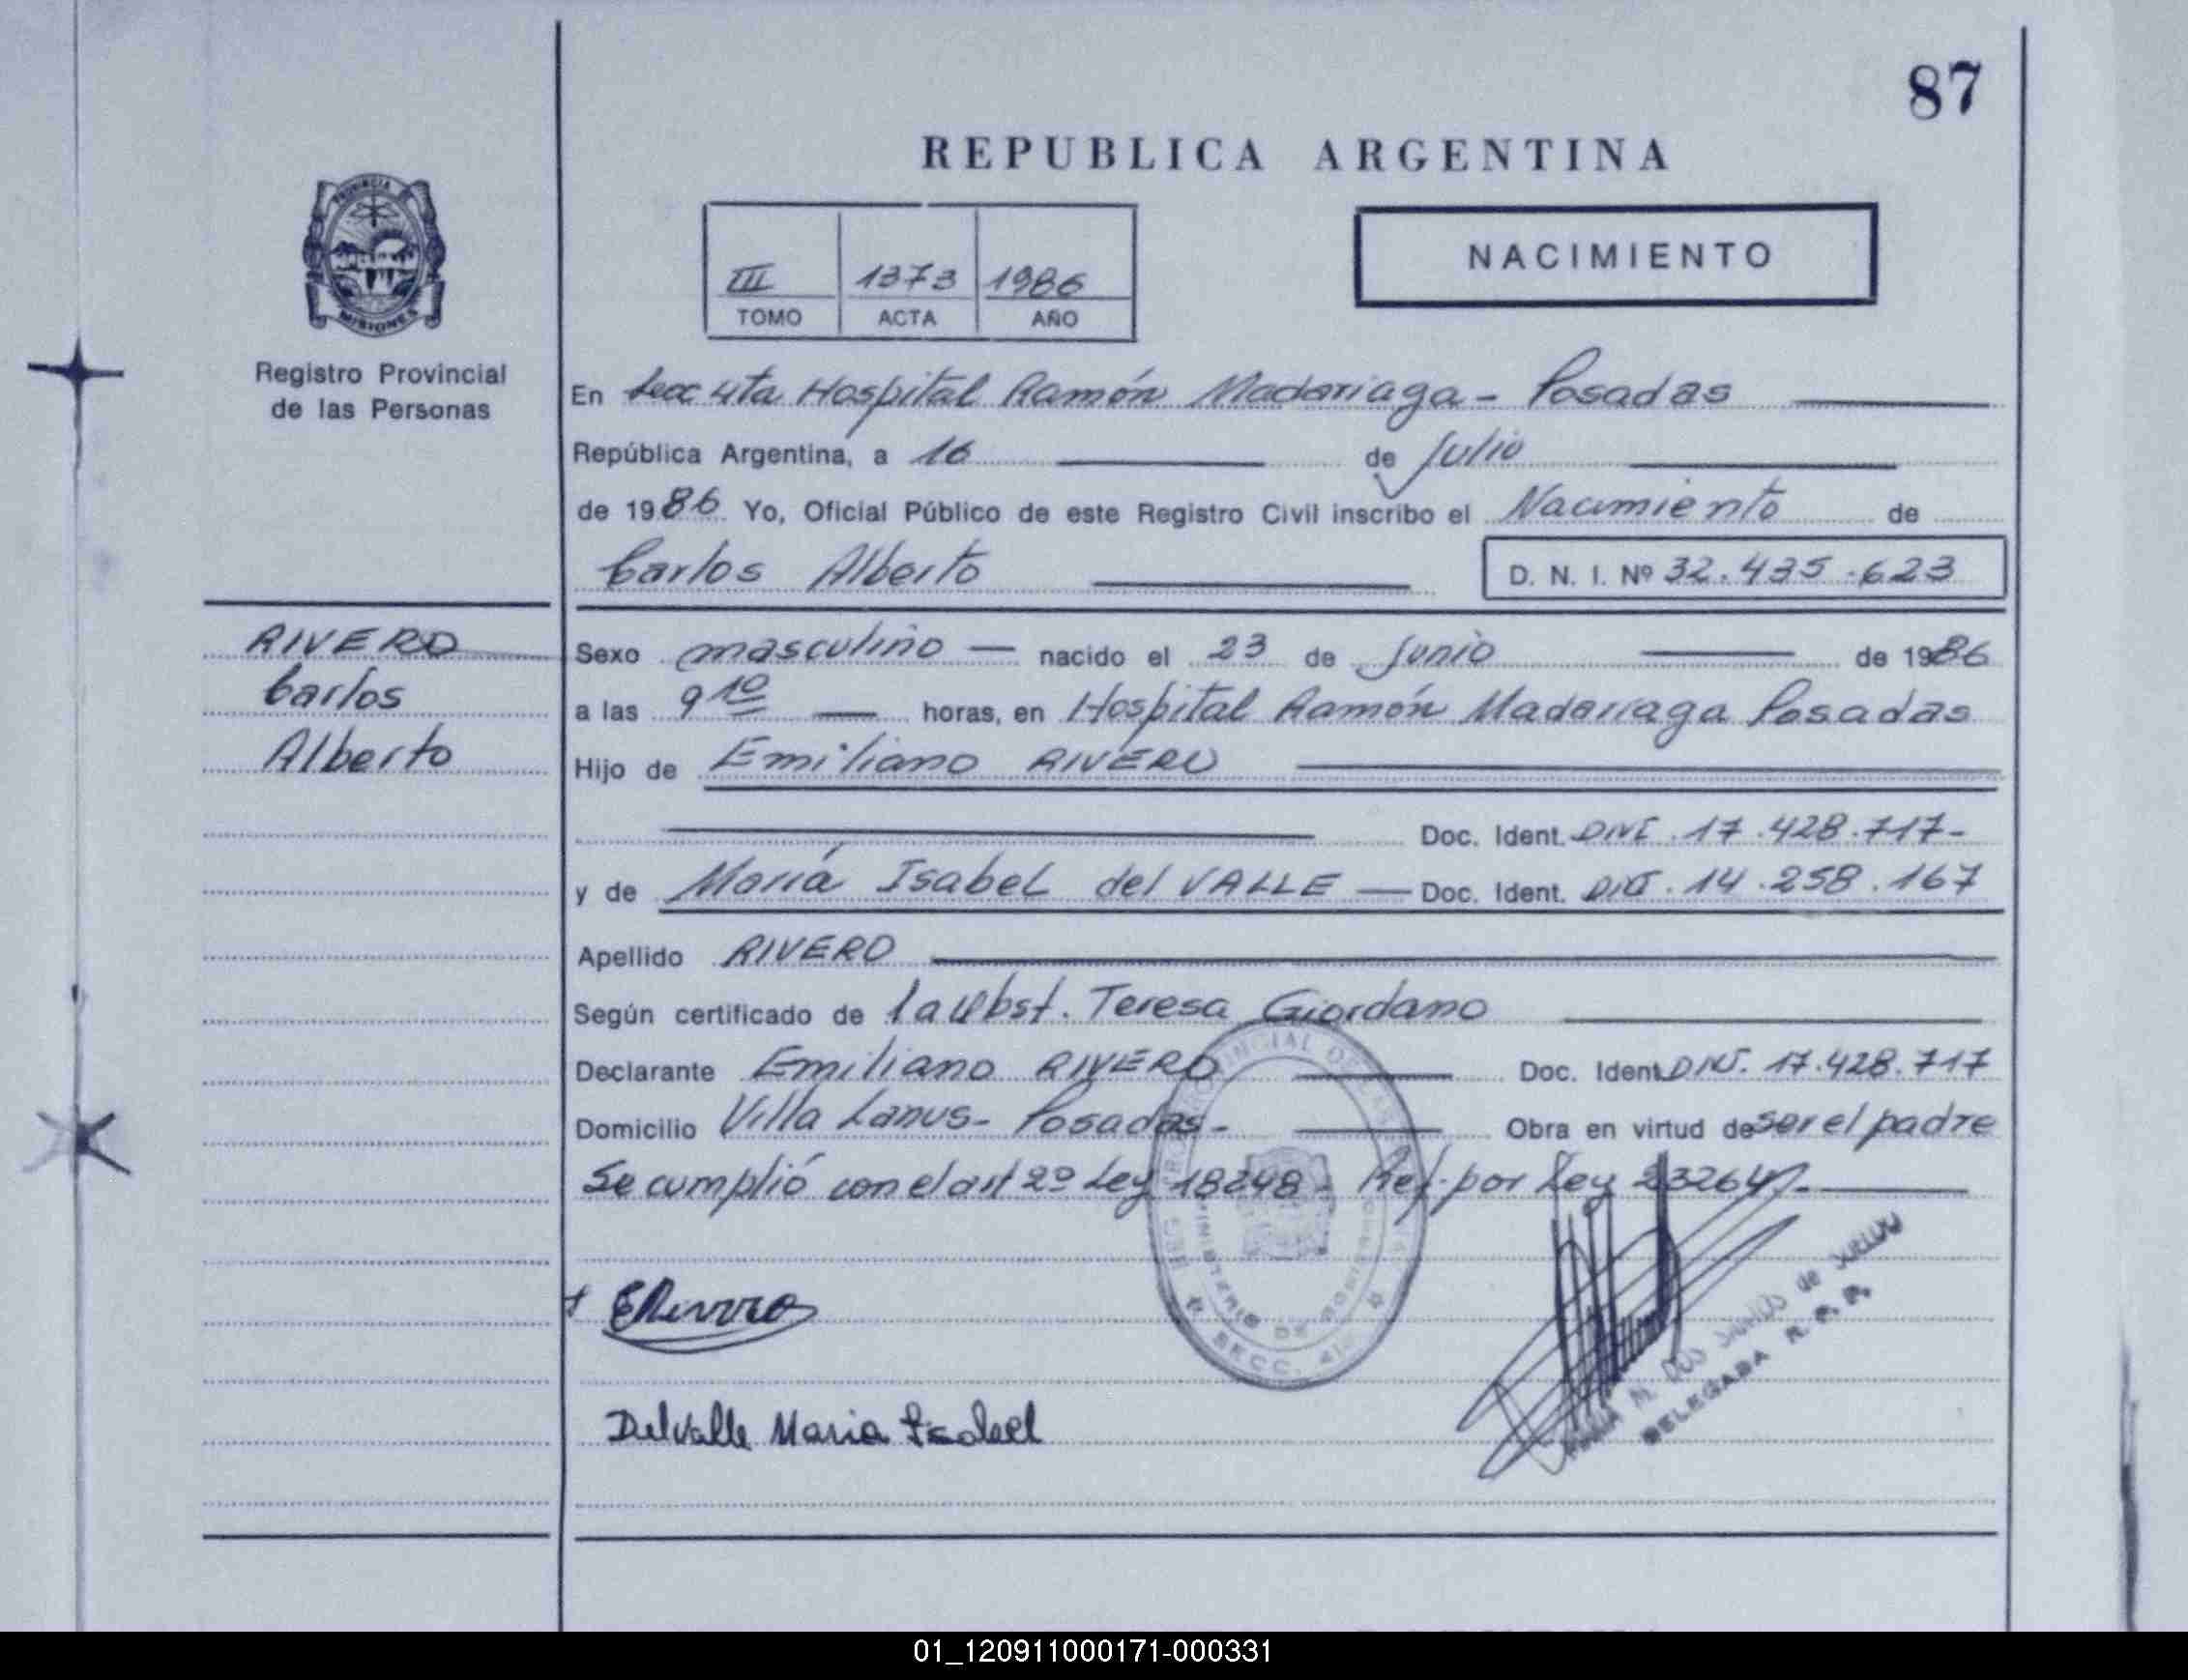 87
REPUBLICA ARGENTINA
PROVINCIA DE
MISIONES
Registro Provincial
de las Personas
III 1373 1986
TOMO ACTA AÑO
NACIMIENTO
En Secc 4ta Hospital Ramón Madariaga - Posadas
República Argentina, a 16 de Julio
de 1986 Yo, Oficial Público de este Registro Civil inscribo el Nacimiento de
Carlos Alberto D. N. I. Nº 32.435.623
RIVERO
Carlos
Alberto
Sexo masculino — nacido el 23 de Junio de 1986
a las 9 10 — horas, en Hospital Ramón Madariaga Posadas
Hijo de Emiliano RIVERO
Doc. Ident. DNI. 17.428.717-
y de María Isabel del VALLE — Doc. Ident. DNI. 14.258.167
Apellido RIVERO
Según certificado de la Obst. Teresa Giordano
Declarante Emiliano RIVERO Doc. Ident. DNI. 17.428.717
Domicilio Villa Lanus - Posadas - Obra en virtud de ser el padre
Se cumplió con el art 2º Ley 18248 - Ref. por Ley 23264 -
MINISTERIO DE GOBIERNO
SECC. 4ta
ERivero
Delvalle Maria Isabel
M. DOS SANTOS de
DELEGADA R. P. P.
01_120911000171-000331